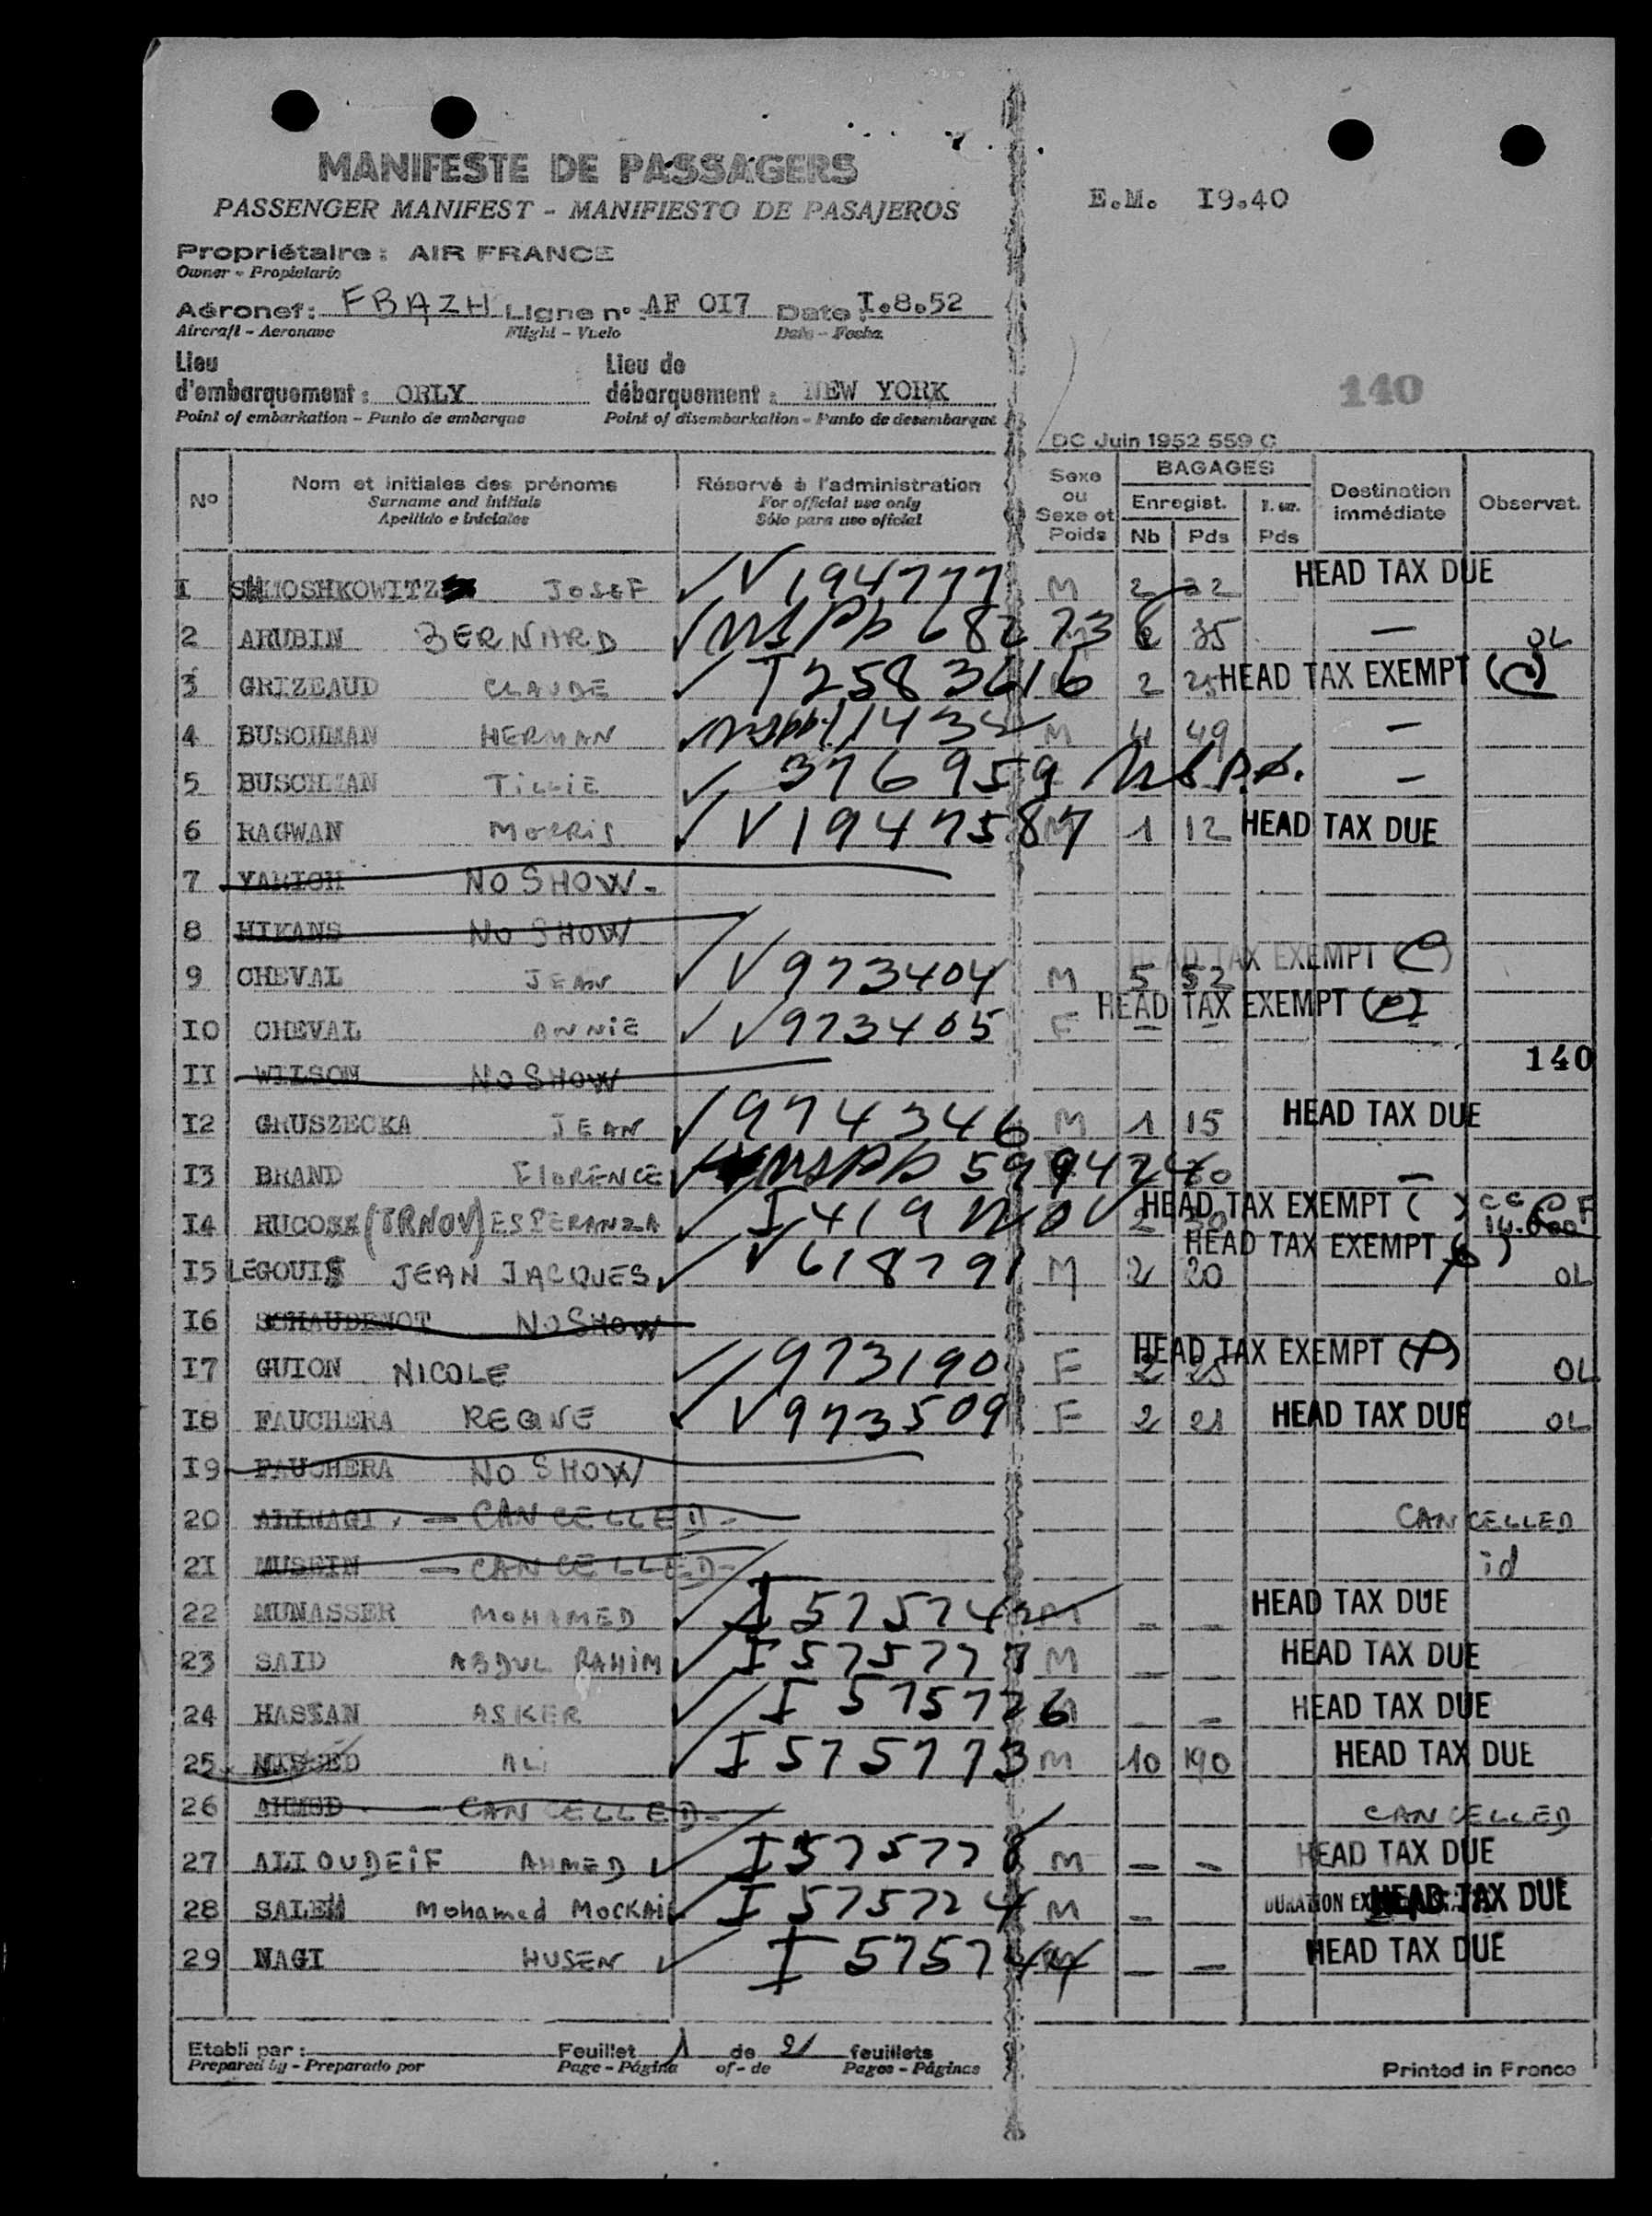 MANIFESTE DE PASSAGERS
PASSENGER MANIFEST - MANIFIESTO DE PASAJEROS
E.M. I9.40
Propriétaire : AIR FRANCE
Owner - Propietario
Aéronef : FBAZH Ligne n° : AF OI7 Date : I.8.52
Aircraft - Aeronave Flight - Vuelo Date - Fecha
Lieu d'embarquement : ORLY Lieu de débarquement : NEW YORK
Point of embarkation - Punto de embarque Point of disembarkation - Punto de desembarque
140
DC Juin 1952 559 C
N° Nom et initiales des prénoms Réservé à l'administration Sexe ou Sexe et Poids BAGAGES Destination immédiate Observat.
Surname and initials For official use only Enregist.
Apellido e iniciales Sólo para uso oficial Nb Pds Pds
I SMIOSHKOWITZ JOSEF V194777 M 2 22 HEAD TAX DUE
2 ARUBIN BERNARD 68273 35 — OL
3 GRIZEAUD CLAUDE T2583616 2 25 HEAD TAX EXEMPT (C)
4 BUSCHMAN HERMAN 11432 M 4 49 —
5 BUSCHMAN TILLIE 376959 —
6 RAGWAN MORRIS V1947587 M 1 12 HEAD TAX DUE
7 NO SHOW -
8 HIKANS NO SHOW
9 CHEVAL JEAN V973404 M 5 52 HEAD TAX EXEMPT (C)
IO CHEVAL ANNIE V973405 F — — HEAD TAX EXEMPT (C)
140
II WILSON NO SHOW
I2 GRUSZECKA JEAN 974346 M 1 15 HEAD TAX DUE
I3 BRAND FLORENCE —
I4 (TRNOV) ESPERANZA I419 2 30 HEAD TAX EXEMPT ( )
I5 LEGOUIS JEAN JACQUES V618791 M 2 20 HEAD TAX EXEMPT OL
I6 NO SHOW
I7 GUION NICOLE 973190 F 2 25 HEAD TAX EXEMPT OL
I8 FAUCHERA REGNE V973509 F 2 21 HEAD TAX DUE OL
I9 FAUCHERA NO SHOW
20 — CANCELLED - CANCELLED
2I MUSEIN — CANCELLED - id
22 MUNASSER MOHAMED I 57574 M — — HEAD TAX DUE
23 SAID ABDUL RAHIM I 575777 M — — HEAD TAX DUE
24 HASSAN ASKER I 575726 M — — HEAD TAX DUE
25 ALI I 575773 M 10 190 HEAD TAX DUE
26 AHMED — CANCELLED - CANCELLED
27 ALI OUDEIF AHMED I 575778 M — — HEAD TAX DUE
28 SALEM Mohamed MOCKAIL I 575724 M — HEAD TAX DUE
29 NAGI HUSEN I 575744 M — — HEAD TAX DUE
Etabli par : Feuillet 1 de 2 feuillets
Prepared by - Preparado por Page - Página of - de Pages - Páginas
Printed in France